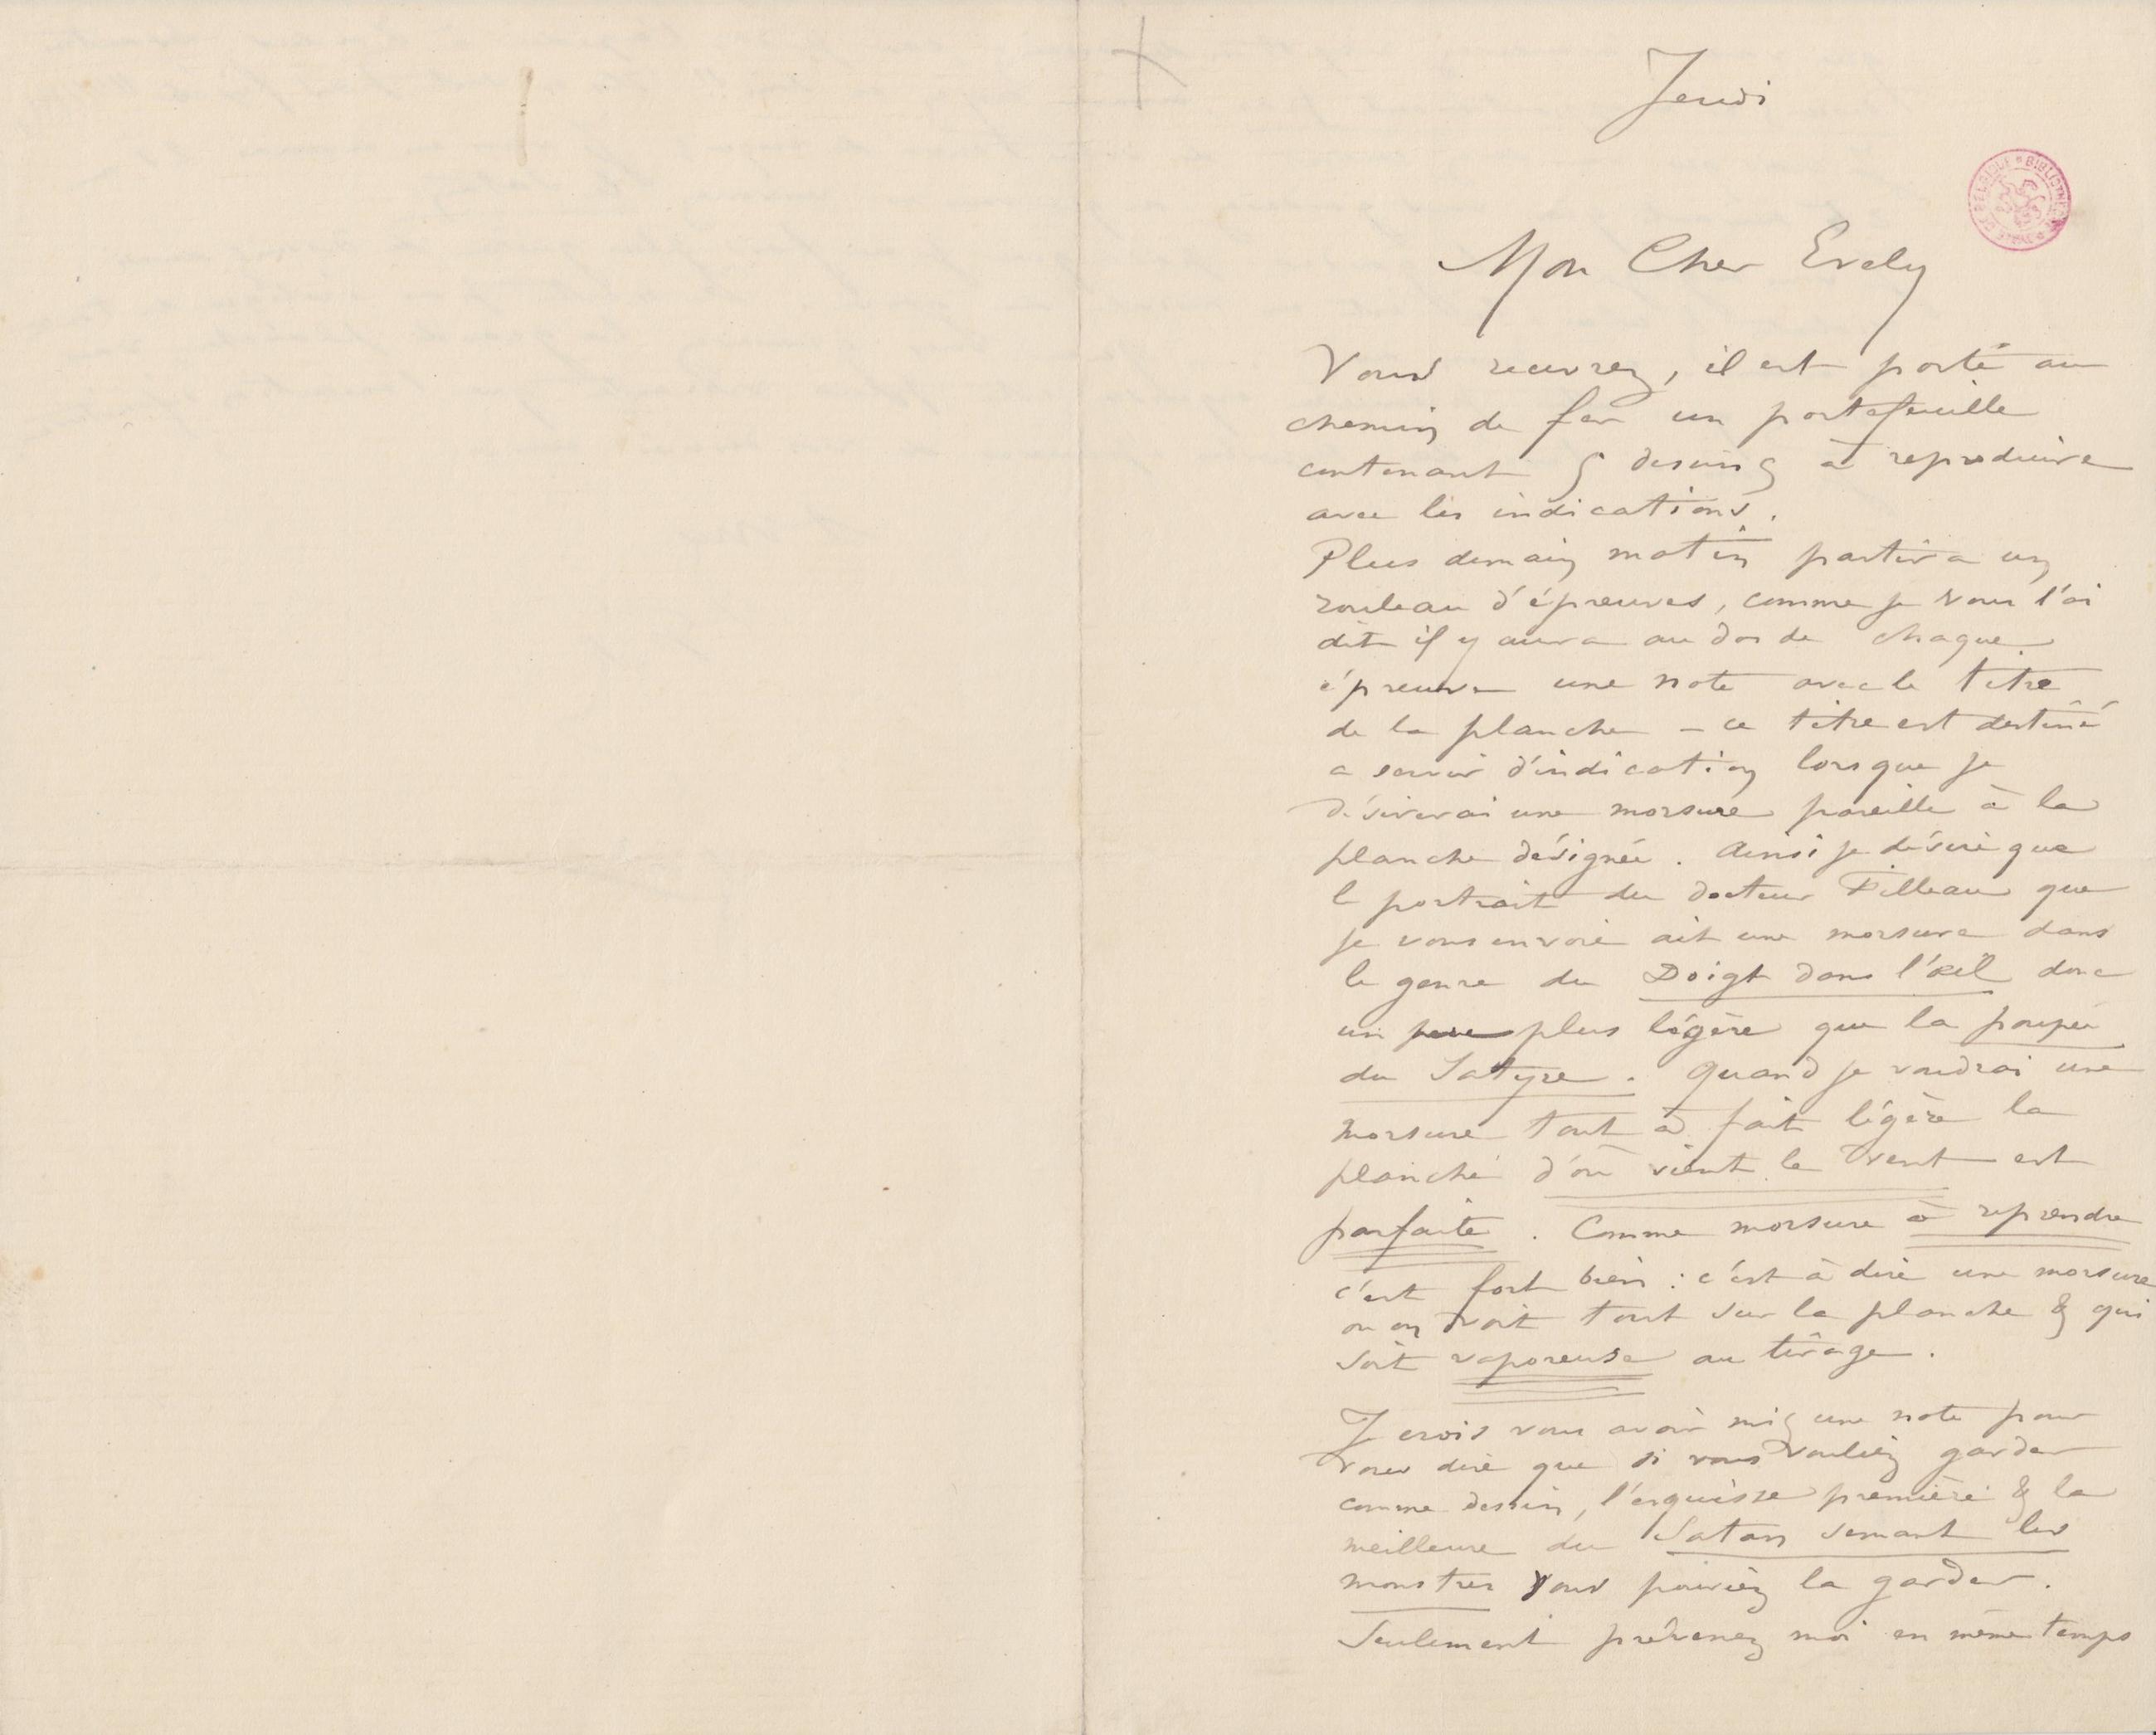 Jeudi
BIBLIOTHÈQUE ROYALE DE BELGIQUE
Mon Cher Evely
Vous recevrez, il est porté au
chemin de fer un portefeuille
contenant 5 dessins à reproduire
avec les indications.
Plus demain matin partira un
rouleau d'épreuves, comme je vous l'ai
dit il y aura au dos de chaque
épreuve une note avec le titre
de la planche – ce titre est destiné
a servir d'indication lorsque je
désirerai une morsure pareille à la
planche désignée. Ainsi je désire que
le portrait du docteur Filleau que
je vous envoie ait une morsure dans
le genre du Doigt dans l'œil donc
un peu plus légère que la poupée
du Satyre. Quand je voudrai une
morsure tout à fait légère la
planche d'où vient le vent est
parfaite. Comme morsure à reprendre
c'est fort bien : c'est à dire une morsure
ou on voit tout sur la planche & qui
soit vaporeuse au tirage.
Je crois vous avoir mis une note pour
vous dire que si vous vouliez garder
comme dessin, l'esquisse première & la
meilleure du Satan semant les
monstres vous pouviez la garder.
Seulement prévenez moi en même temps